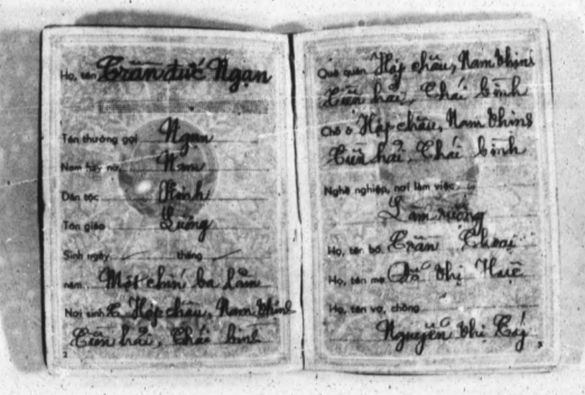 Họ, tên Trần đức Ngạn
Tên thường gọi Ngạn
Nam hay nữ Nam
Dân tộc Kinh
Tôn giáo Lương
Sinh ngày tháng
năm Một chín ba lăm
Nơi sinh Hợp châu, Nam thịnh
Tiền hải, Thái bình
2
Quê quán Hợp châu, Nam thịnh
Tiền hải, Thái bình
Chỗ ở Hợp châu, Nam thịnh
Tiền hải, Thái bình
Nghề nghiệp, nơi làm việc
Làm ruộng
Họ, tên bố Trần
Họ, tên mẹ Đỗ thị Huệ
Họ, tên vợ, chồng
Nguyễn thị
3